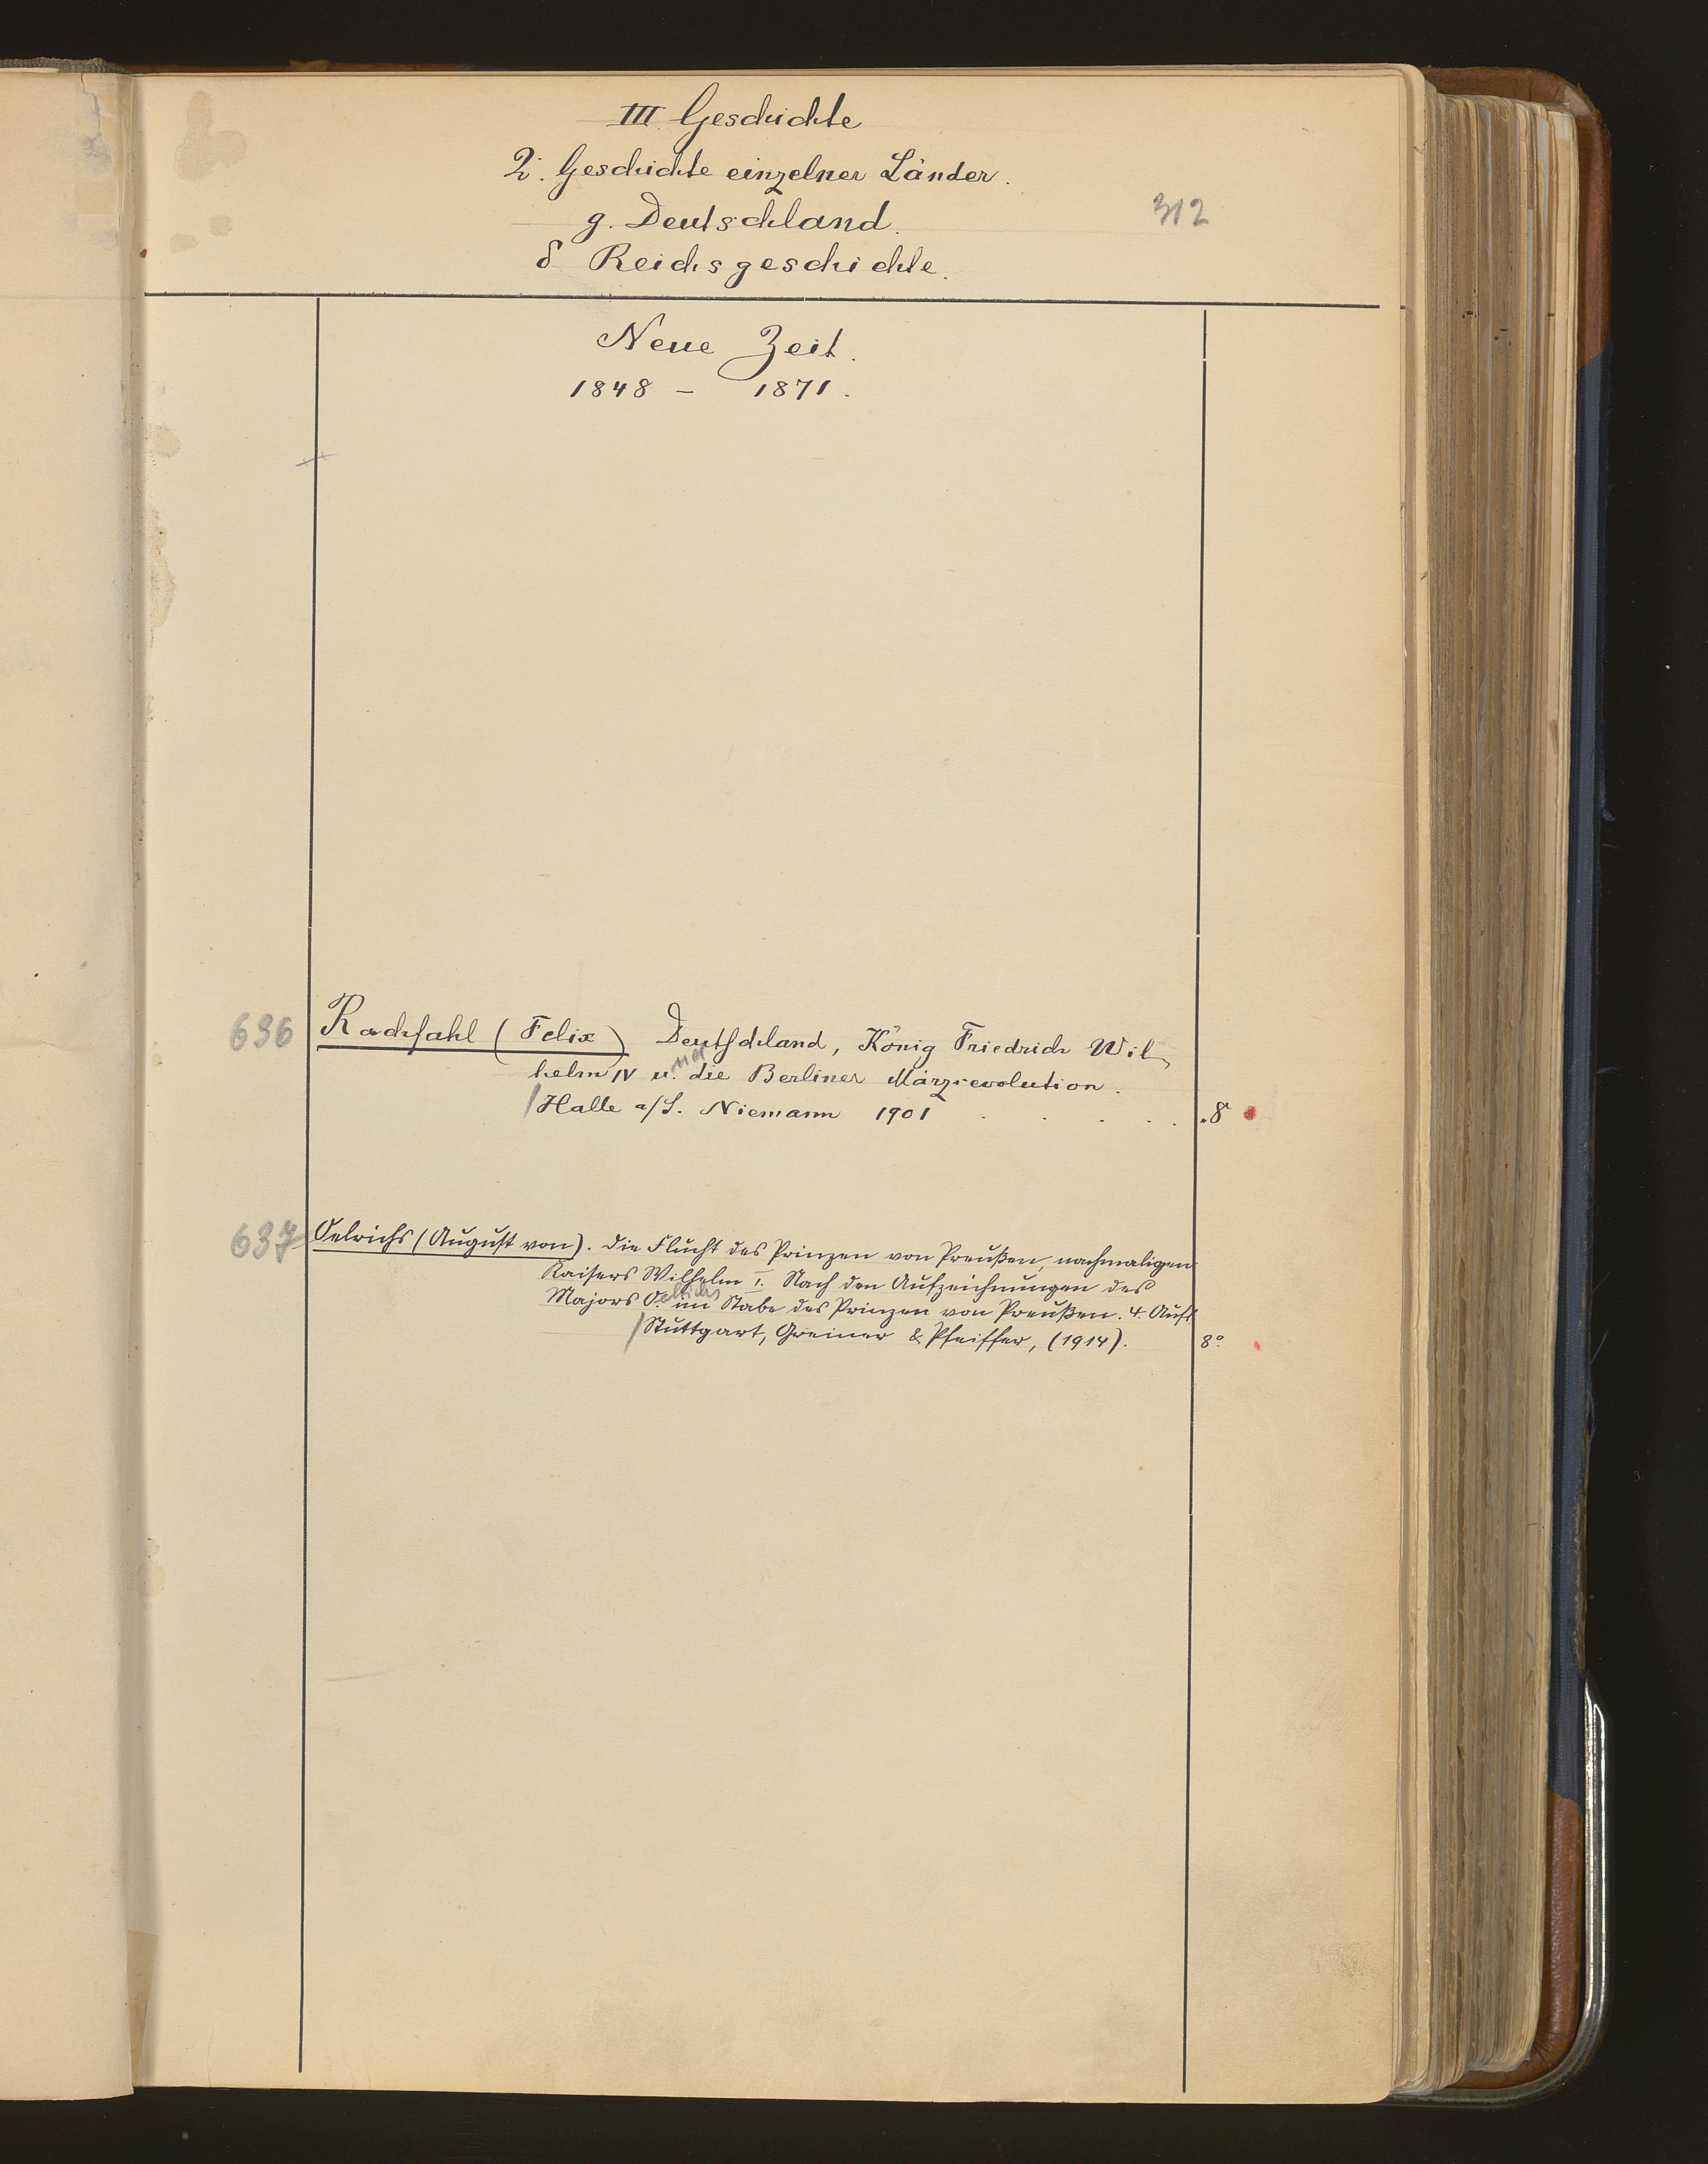 III. Geschichte
2. Geschichte einzelner Länder.
g. Deutschland.
312
δ Reichsgeschichte.
Neue Zeit.
1848 – 1871.
636 Rachfahl (Felix) Deutschland, König Friedrich Wil
helm IV u. die Berliner Märzrevolution.
Halle a/S. Niemann 1901 . . . . . 8°
637 Oelrichs (August von). Die Flucht des Prinzen von Preußen, nachmaligen
Kaisers Wilhelm I. Nach den Aufzeichnungen des
Majors O. elrichs im Stabe des Prinzen von Preußen. 4. Aufl.
Stuttgart, Greiner & Pfeiffer, (1914). 8°